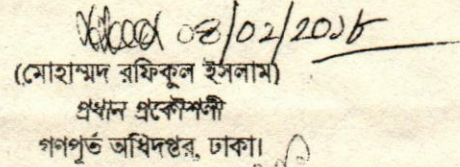 ০৪/০২/২০১৮
(মোহাম্মদ রফিকুল ইসলাম)
প্রধান প্রকৌশলী
গণপূর্ত অধিদপ্তর, ঢাকা।